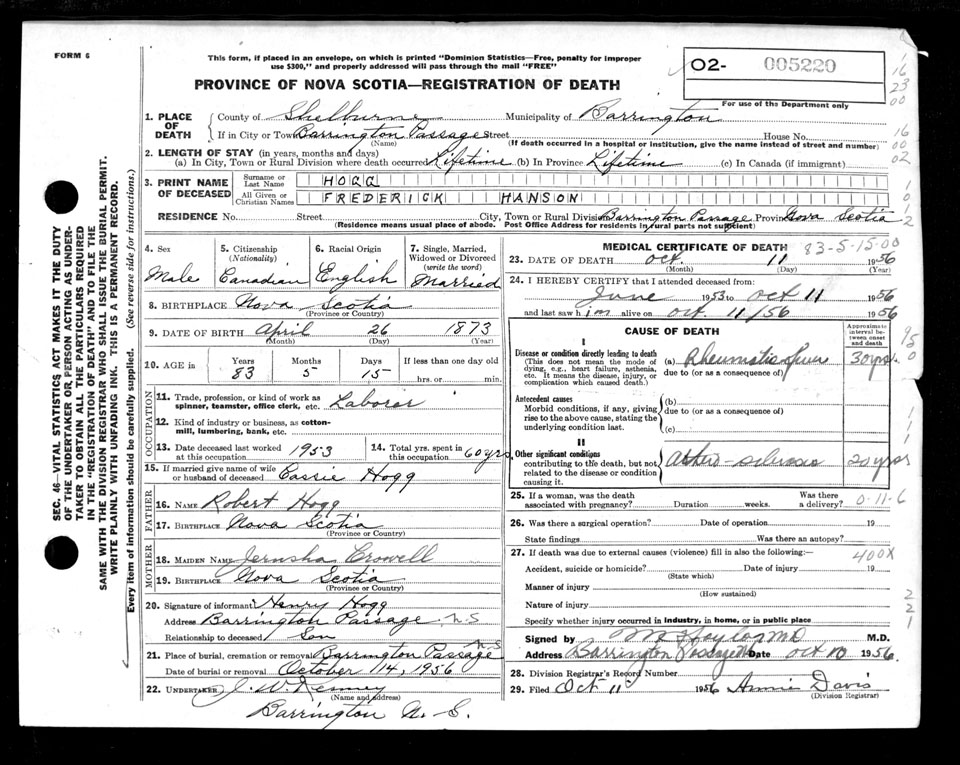 FORM 6
This form, if placed in an envelope, on which is printed "Dominion Statistics—Free, penalty for improper
use $300," and properly addressed will pass through the mail "FREE"
PROVINCE OF NOVA SCOTIA—REGISTRATION OF DEATH
O2- 005220
For use of the Department only
16
23
00
16
00
02
1. PLACE OF DEATH
County of Shelburne Municipality of Barrington
If in City or Town Barrington Passage Street House No.
(Name) (If death occurred in a hospital or institution, give the name instead of street and number)
2. LENGTH OF STAY (in years, months and days)
(a) In City, Town or Rural Division where death occurred Lifetime (b) In Province Lifetime (c) In Canada (if immigrant)
3. PRINT NAME OF DECEASED
Surname or Last Name HOGG
All Given or Christian Names FREDERICK HANSON
RESIDENCE No. Street City, Town or Rural Division Barrington Passage Province Nova Scotia
(Residence means usual place of abode. Post Office Address for residents in rural parts not sufficient)
4. Sex
Male
5. Citizenship
(Nationality)
Canadian
6. Racial Origin
English
7. Single, Married, Widowed or Divorced
(write the word)
Married
8. BIRTHPLACE Nova Scotia
(Province or Country)
9. DATE OF BIRTH April 26 1873
(Month) (Day) (Year)
10. AGE in Years Months Days If less than one day old
83 5 15 hrs. or min.
OCCUPATION
11. Trade, profession, or kind of work as
spinner, teamster, office clerk, etc. Laborer
12. Kind of industry or business, as cotton-
mill, lumbering, bank, etc.
13. Date deceased last worked
at this occupation 1953
14. Total yrs. spent in
this occupation 60 yrs
15. If married give name of wife
or husband of deceased Cassie Hogg
FATHER
16. NAME Robert Hogg
17. BIRTHPLACE Nova Scotia
(Province or Country)
MOTHER
18. MAIDEN NAME Jerusha Crowell
19. BIRTHPLACE Nova Scotia
(Province or Country)
20. Signature of informant Henry Hogg
Address Barrington Passage N.S
Relationship to deceased Son
21. Place of burial, cremation or removal Barrington Passage N.S
Date of burial or removal October 14, 1956
22. UNDERTAKER J. W. Kenney
(Name and address)
Barrington N. S.
MEDICAL CERTIFICATE OF DEATH 83-5-15-00
23. DATE OF DEATH Oct. 11 1956
(Month) (Day) (Year)
24. I HEREBY CERTIFY that I attended deceased from:
June 1953 to Oct 11 1956
and last saw him alive on Oct. 11/56 1956
CAUSE OF DEATH
Approximate interval between onset and death
I
Disease or condition directly leading to death
(This does not mean the mode of
dying, e.g., heart failure, asthenia,
etc. It means the disease, injury, or
complication which caused death.)
(a) Rheumatic fever 30 yrs.
due to (or as a consequence of)
Antecedent causes
Morbid conditions, if any, giving
rise to the above cause, stating the
underlying condition last.
(b)
due to (or as a consequence of)
(c)
II
Other significant conditions
contributing to the death, but not
related to the disease or condition
causing it.
20 yrs
25. If a woman, was the death
associated with pregnancy? Duration weeks. Was there
a delivery?
0-11-6
26. Was there a surgical operation? Date of operation 19
State findings Was there an autopsy?
27. If death was due to external causes (violence) fill in also the following:—
400X
Accident, suicide or homicide? Date of injury 19
(State which)
Manner of injury
(How sustained)
Nature of injury
Specify whether injury occurred in Industry, in home, or in public place
2
2
1
Signed by M.D.
Address Barrington Passage Date Oct 10 1956
28. Division Registrar's Record Number
29. Filed Oct 11 1956 Annie Davis
(Division Registrar)
SEC. 46—VITAL STATISTICS ACT MAKES IT THE DUTY
OF THE UNDERTAKER OR PERSON ACTING AS UNDER-
TAKER TO OBTAIN ALL THE PARTICULARS REQUIRED
IN THE "REGISTRATION OF DEATH" AND TO FILE THE
SAME WITH THE DIVISION REGISTRAR WHO SHALL ISSUE THE BURIAL PERMIT.
WRITE PLAINLY WITH UNFADING INK. THIS IS A PERMANENT RECORD.
Every item of information should be carefully supplied. (See reverse side for instructions.)